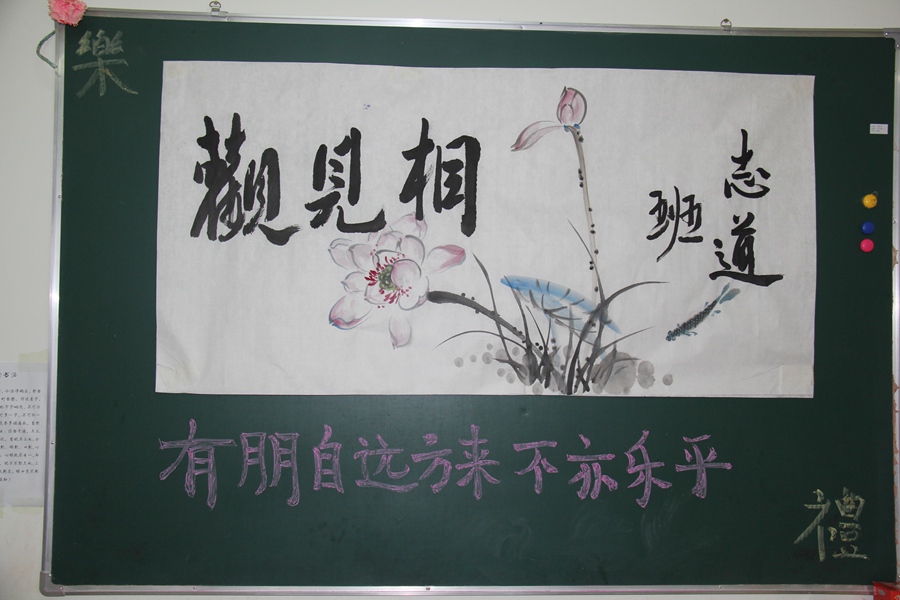 樂
觀見相
志道
班
有朋自远方来不亦乐乎
禮